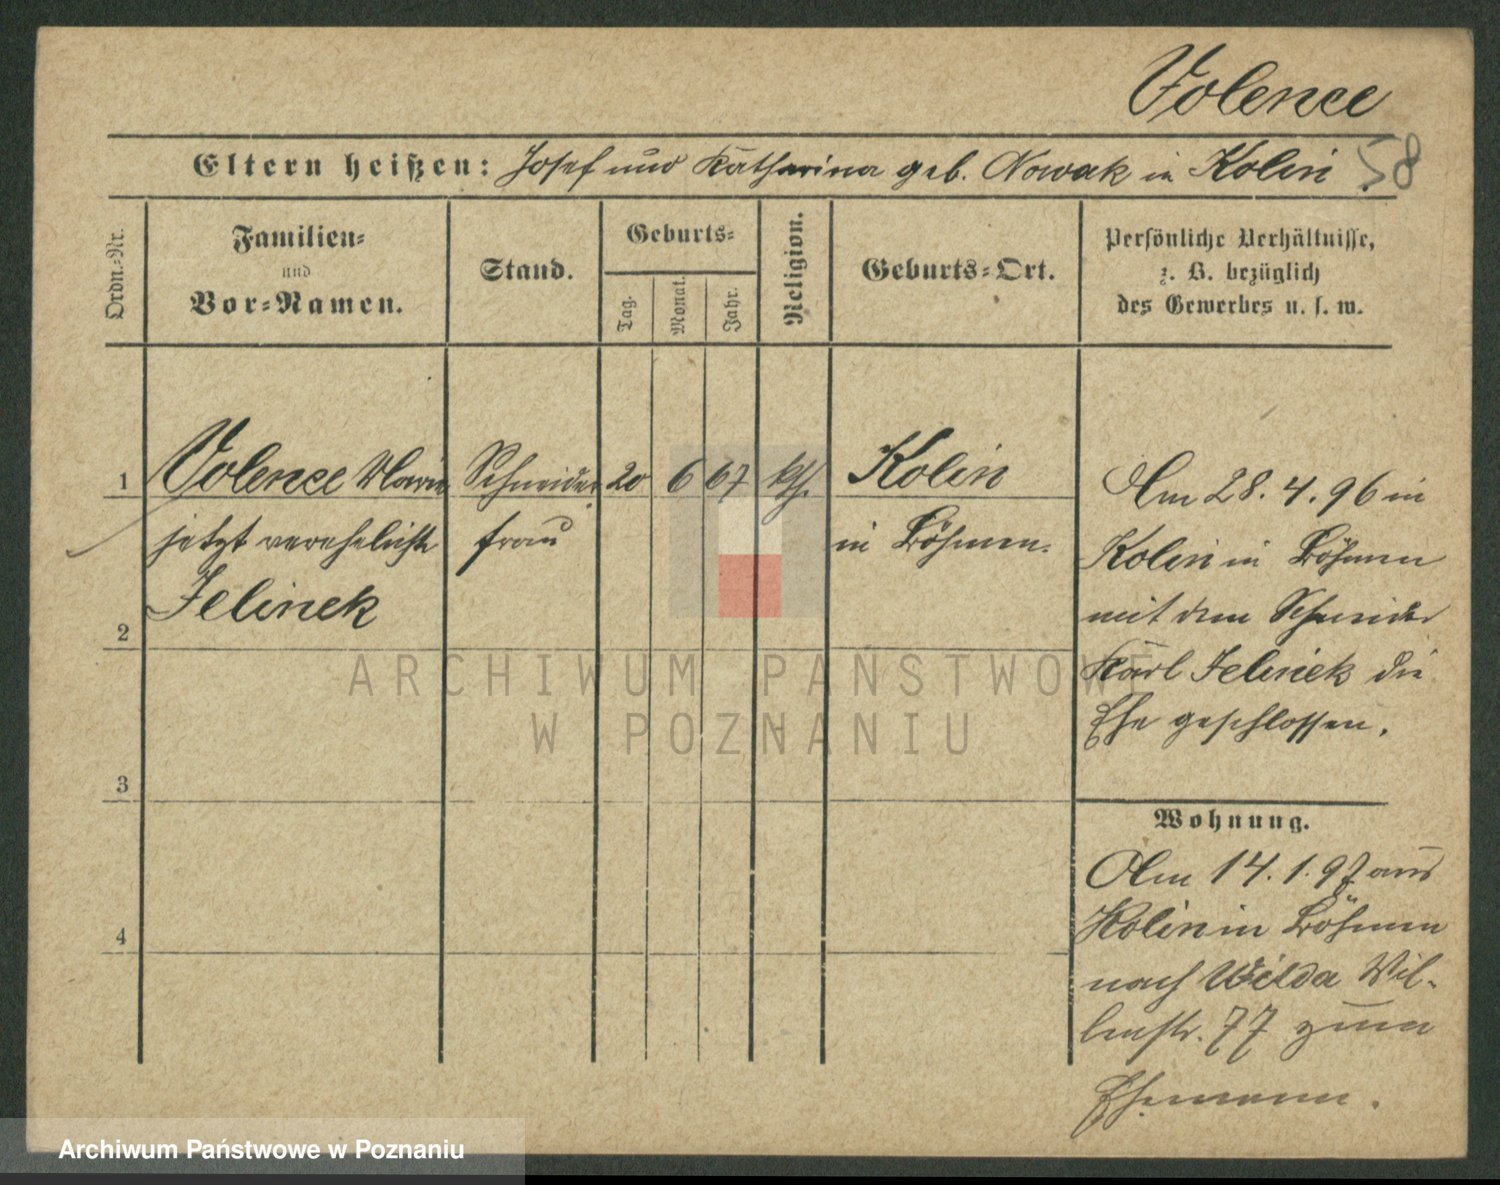 Volence
Eltern heißen: Josef und Katharina geb. Nowak in Kolin 58
Ordn.-Nr.
Familien-
und
Vor-Namen.
Stand.
Geburts-
Tag.
Monat.
Jahr.
Religion.
Geburts-Ort.
Persönliche Verhältnisse,
z. B. bezüglich
des Gewerbes u. s. w.
1 Volence Marie Schneider 20 6 67 kth. Kolin
jetzt verehelichte frau in Böhmen.
Jelinek
2
3
4
Am 28. 4. 96 in
Kolin in Böhmen
mit dem Schneider
Karl Jelinek die
Ehe geschlossen.
Wohnung.
Am 14. 1. 97 aus
Kolin in Böhmen
nach Wilda Wil-
lenstr. 77 zum
Ehemann.
ARCHIWUM PAŃSTWOWE
W POZNANIU
Archiwum Państwowe w Poznaniu